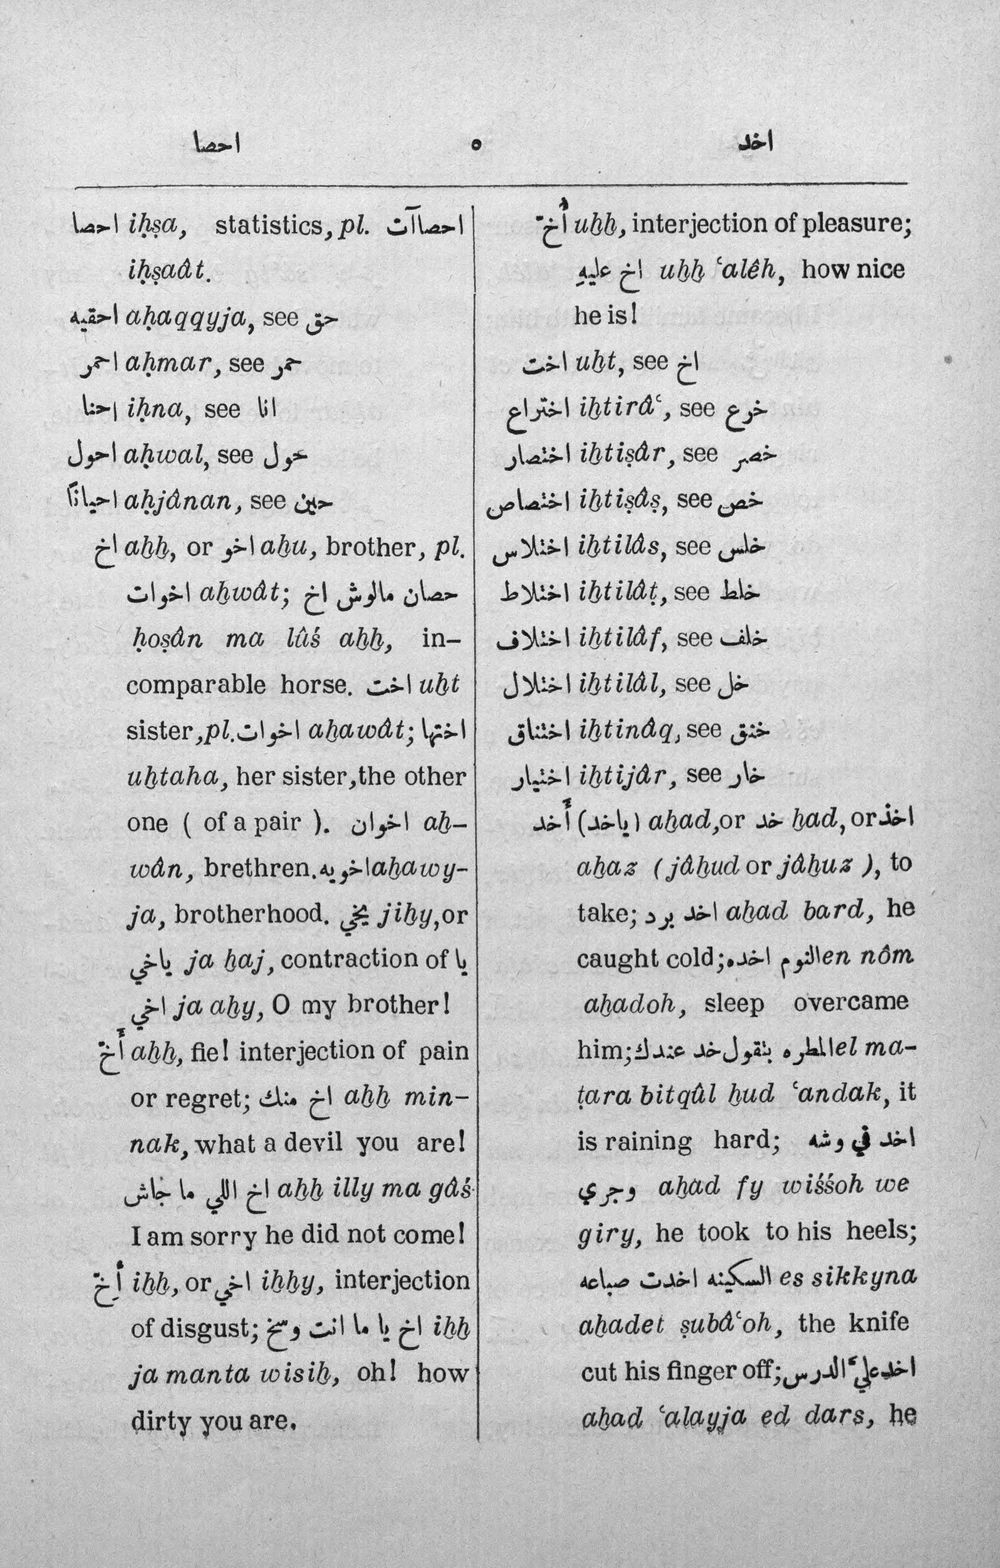 احصا ٥ اخد
احصا iḥṣa, statistics, pl. احصاآت
iḥṣaât.
احقيه aḥaqqyja, see حق
احمر aḥmar, see حمر
احنا iḥna, see انا
احول aḥwal, see حول
احيانًا aḥjânan, see حين
اخ aḫḫ, or اخو aḫu, brother, pl.
اخوات aḫwât; حصان مالوش اخ
ḥoṣân ma lûś aḫḫ, in-
comparable horse. اخت uḫt
sister, pl. اخوات aḫawât; اختها
uḫtaha, her sister, the other
one ( of a pair ). اخوان aḫ-
wân, brethren. اخويه aḫawy-
ja, brotherhood. يخي jiḫy, or
ياخي ja ḫaj, contraction of يا
اخي ja aḫy, O my brother!
أَخّ aḫḫ, fie! interjection of pain
or regret; اخ منك aḫḫ min-
nak, what a devil you are!
اخ اللي ما جاش aḫḫ illy ma gâś
I am sorry he did not come!
أِخّ iḫḫ, or اخي iḫḫy, interjection
of disgust; اخ يا ما انت وسخ iḫḫ
ja manta wisiḫ, oh! how
dirty you are.
أُخّ uḫḫ, interjection of pleasure;
اخ عليهِ uḫḫ ʿalêh, how nice
he is!
اخت uḫt, see اخ
اختراع iḫtirâʿ, see خرع
اختصار iḫtiṣâr, see خصر
اختصاص iḫtiṣâṣ, see خص
اختلاس iḫtilâs, see خلس
اختلاط iḫtilâṭ, see خلط
اختلاف iḫtilâf, see خلف
اختلال iḫtilâl, see خل
اختناق iḫtinâq, see خنق
اختيار iḫtijâr, see خار
أَخد (ياخد) aḫad, or خد ḫad, or اخذ
aḫaz (jâḫud or jâḫuz ), to
take; اخد برد aḫad bard, he
caught cold; النوم اخده en nôm
aḫadoh, sleep overcame
him; المطره بتقول خد عندك el ma-
ṭara bitqûl ḫud ʿandak, it
is raining hard; اخد في وشه
وجري aḫad fy wiśśoh we
giry, he took to his heels;
السكينه اخدت صباعه es sikkyna
aḫadet ṣubâʿoh, the knife
cut his finger off; اخد عليَّ الدرس
aḫad ʿalayja ed dars, he